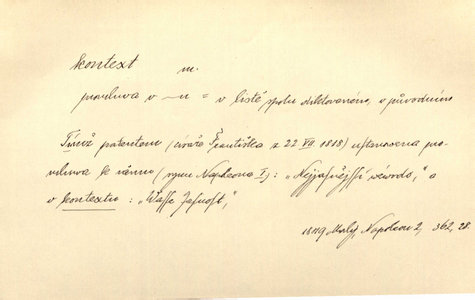 kontext m.
promluva v —u = v listě spolu diktovaném, v původním
Týmž patentem (císaře Františka z 22 VII. 1818) ustanovena pro-
mluva ke synu (Napoleona I): „Nejjasnější wéwodo," a
v kontextu: „Wasse Jasnost,"
1849 Malý, Napoleon 2, 362, 28.